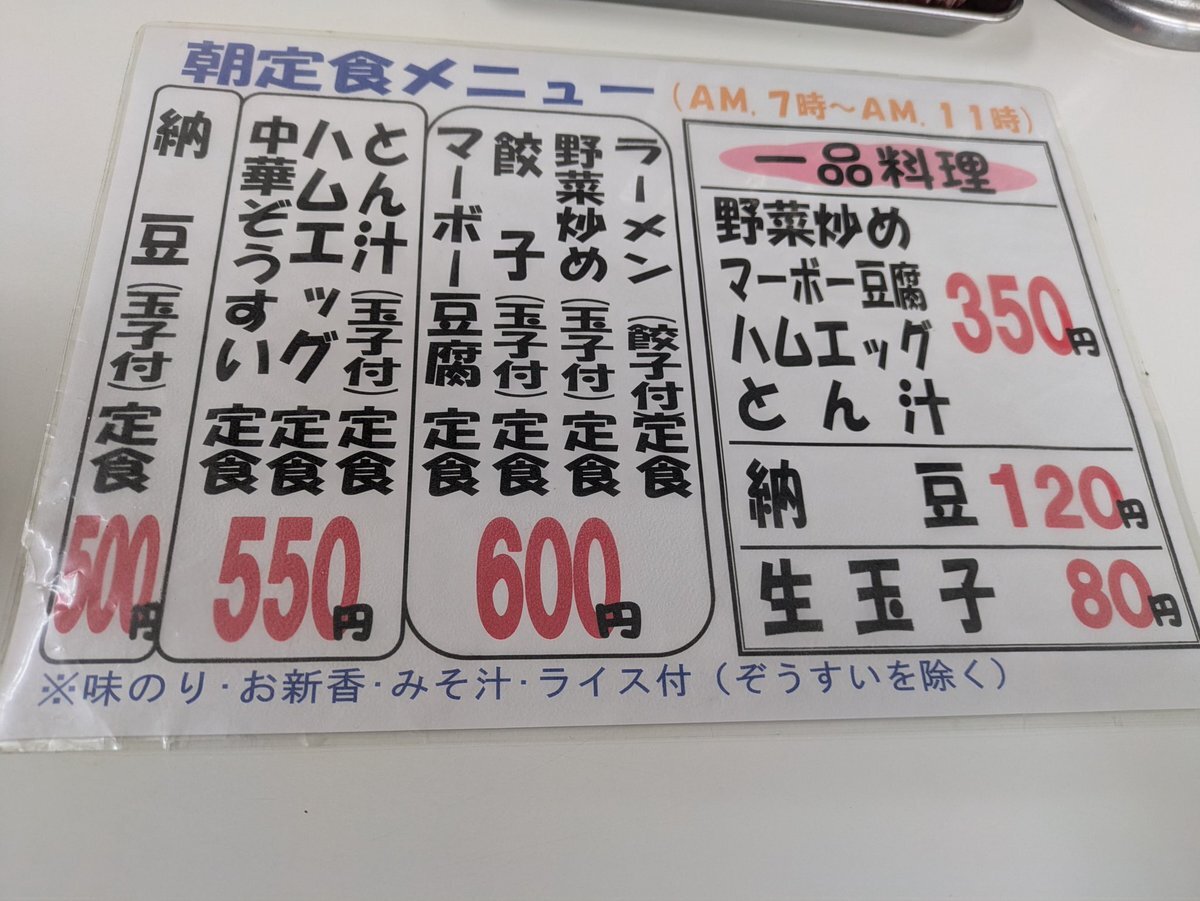 朝定食メニュー（AM.7時～AM.11時）
ラーメン（餃子付）定食
野菜炒め（玉子付）定食
餃子（玉子付）定食
マーボー豆腐定食
600円
とん汁（玉子付）定食
ハムエッグ定食
中華ぞうすい定食
550円
納豆（玉子付）定食
500円
一品料理
野菜炒め
マーボー豆腐
ハムエッグ
とん汁
350円
納豆 120円
生玉子 80円
※味のり・お新香・みそ汁・ライス付（ぞうすいを除く）